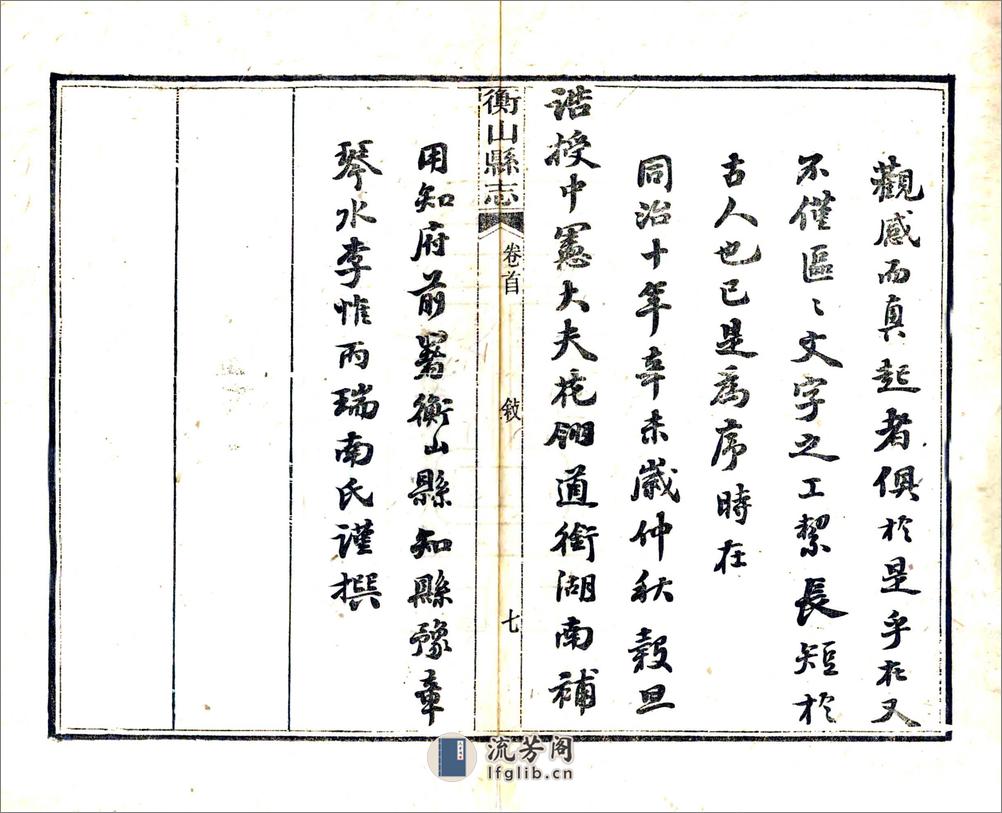 觀感而具起者俱於是乎在又
不僅區〻文字之工絜長短於
古人也已是爲序時在
同治十年辛未歲仲秋穀旦
誥授中憲大夫花翎道銜湖南補
衡山縣志
卷首
敘
七
用知府前署衡山縣知縣豫章
琴水李惟丙瑞南氏謹撰
流芳阁
lfglib.cn